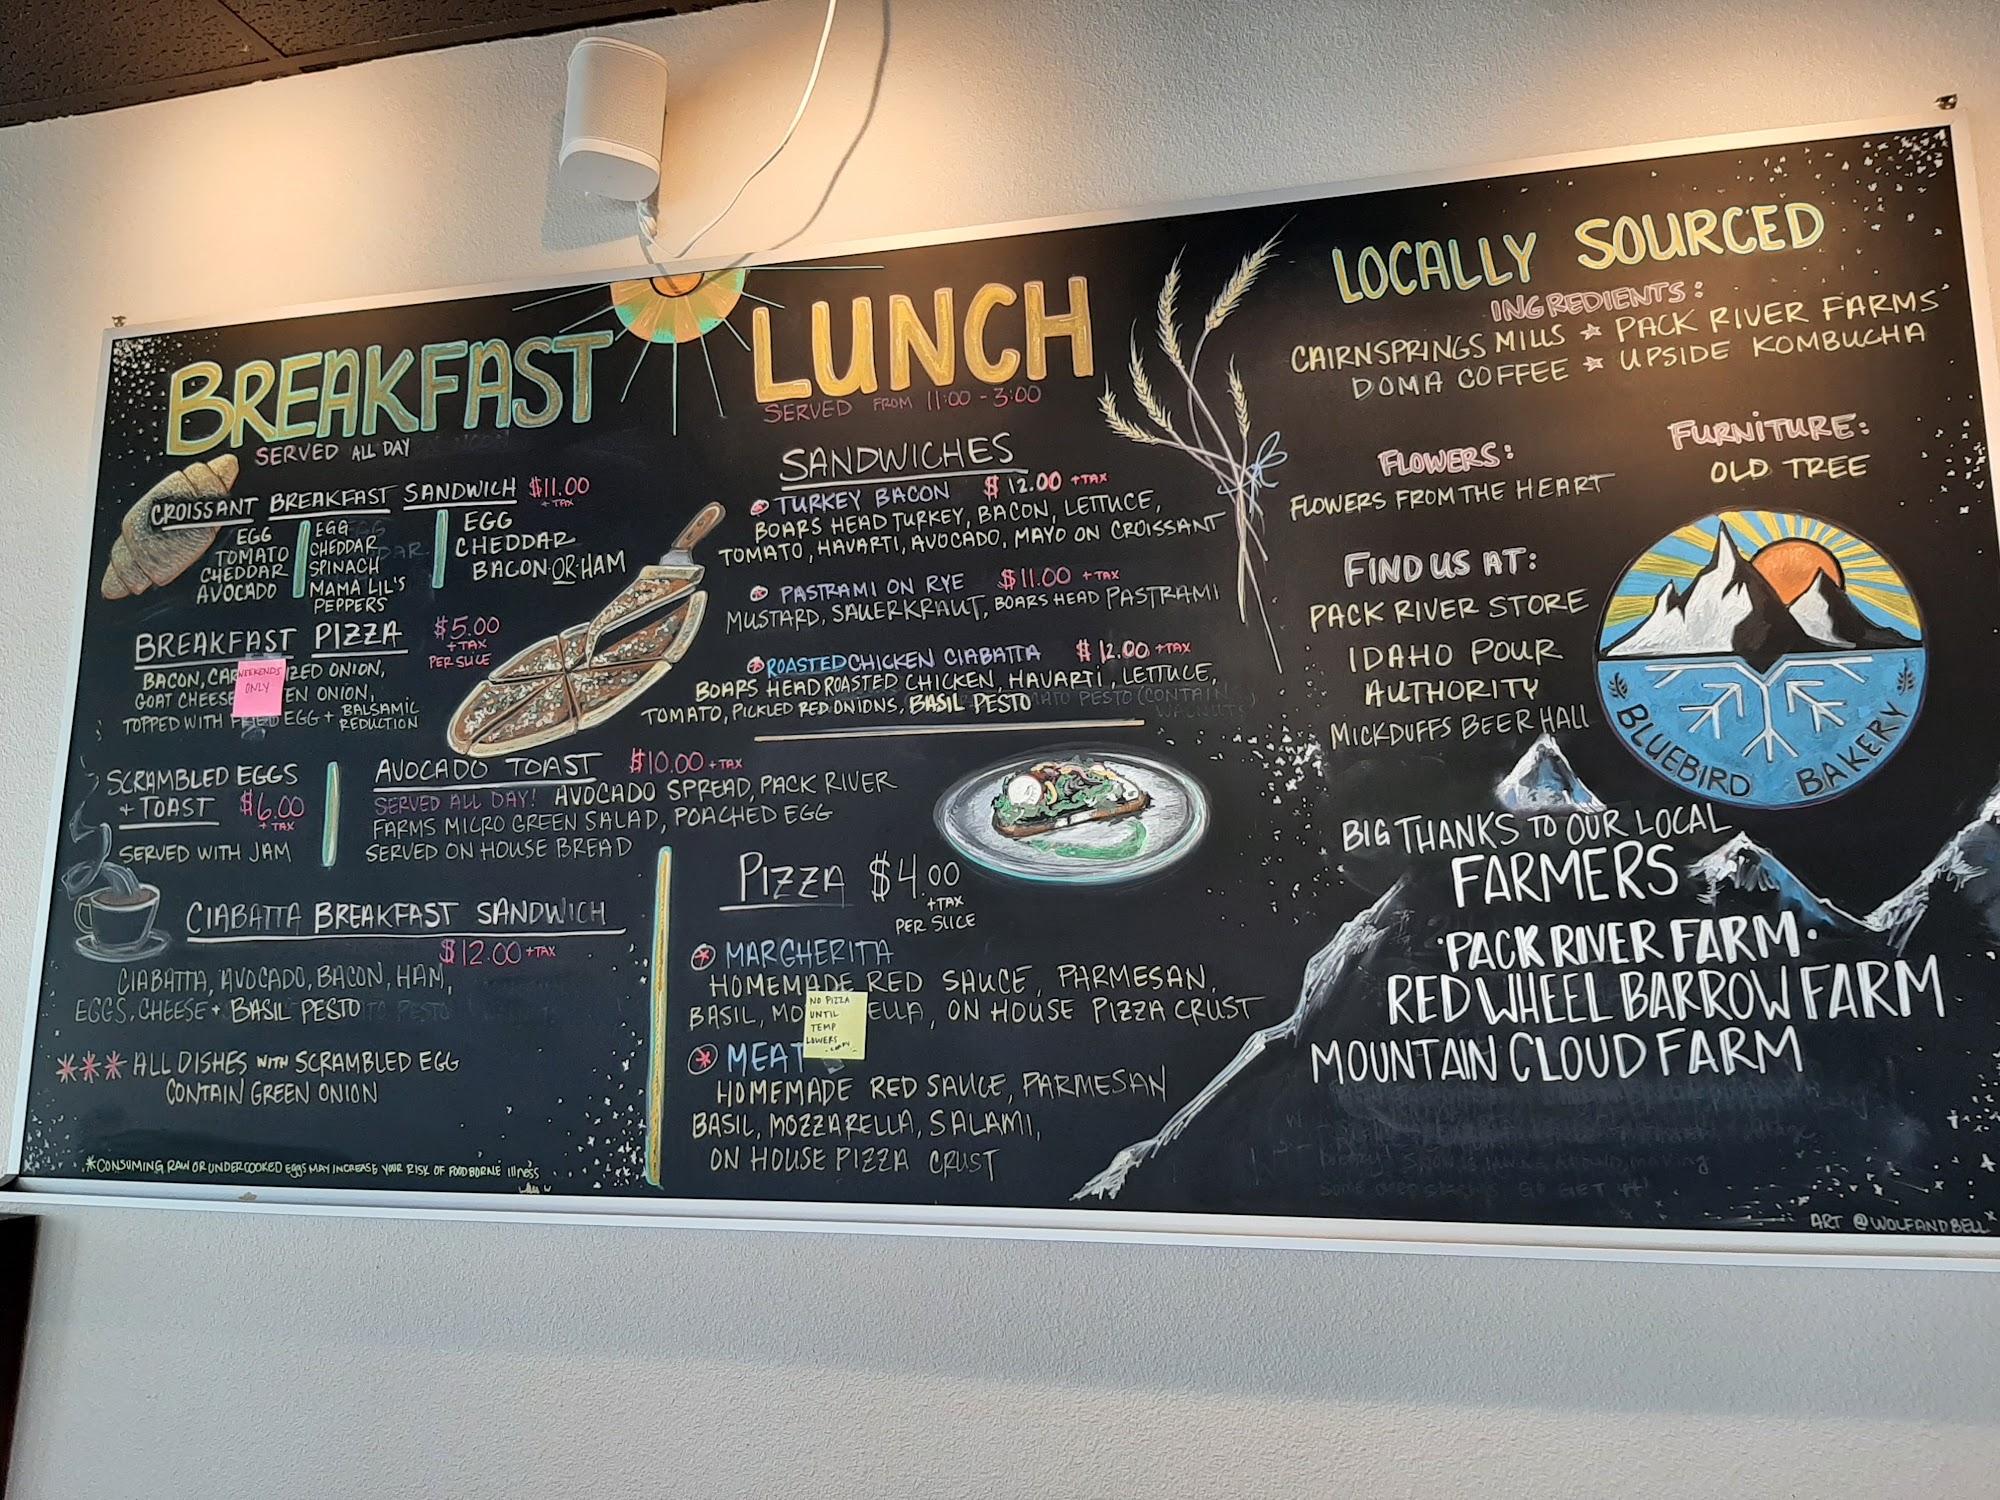 BREAKFAST
SERVED ALL DAY
CROISSANT BREAKFAST SANDWICH $11.00
+ TAX
EGG
TOMATO
CHEDDAR
AVOCADO
EGG
CHEDDAR
SPINACH
MAMA LIL'S
PEPPERS
EGG
CHEDDAR
BACON-OR-HAM
BREAKFAST PIZZA
$5.00
+ TAX
PER SLICE
BACON, CAR ZED ONION,
GOAT CHEESE EN ONION,
TOPPED WITH FRIED EGG + BALSAMIC
REDUCTION
WEEKENDS
ONLY
SCRAMBLED EGGS
+ TOAST $6.00
+ TAX
SERVED WITH JAM
AVOCADO TOAST $10.00 + TAX
SERVED ALL DAY! AVOCADO SPREAD, PACK RIVER
FARMS MICRO GREEN SALAD, POACHED EGG
SERVED ON HOUSE BREAD
CIABATTA BREAKFAST SANDWICH
$12.00 + TAX
CIABATTA, AVOCADO, BACON, HAM,
EGGS, CHEESE + BASIL PESTO
*** ALL DISHES WITH SCRAMBLED EGG
CONTAIN GREEN ONION
*CONSUMING RAW OR UNDERCOOKED EGGS MAY INCREASE YOUR RISK OF FOODBORNE Illness
LUNCH
SERVED FROM 11:00 - 3:00
SANDWICHES
TURKEY BACON $12.00 + TAX
BOARS HEAD TURKEY, BACON, LETTUCE,
TOMATO, HAVARTI, AVOCADO, MAYO ON CROISSANT
PASTRAMI ON RYE $11.00 + TAX
MUSTARD, SAUERKRAUT, BOARS HEAD PASTRAMI
ROASTED CHICKEN CIABATTA $12.00 + TAX
BOARS HEAD ROASTED CHICKEN, HAVARTI, LETTUCE,
TOMATO, PICKLED RED ONIONS, BASIL PESTO
PIZZA $4.00
+ TAX
PER SLICE
* MARGHERITA
HOMEMADE RED SAUCE, PARMESAN,
BASIL, MO ELLA, ON HOUSE PIZZA CRUST
NO PIZZA
UNTIL
TEMP
LOWERS
* MEAT
HOMEMADE RED SAUCE, PARMESAN
BASIL, MOZZARELLA, SALAMI,
ON HOUSE PIZZA CRUST
LOCALLY SOURCED
INGREDIENTS:
CAIRNSPRINGS MILLS ☆ PACK RIVER FARMS
DOMA COFFEE ☆ UPSIDE KOMBUCHA
FLOWERS:
FLOWERS FROM THE HEART
FURNITURE:
OLD TREE
FIND US AT:
PACK RIVER STORE
IDAHO POUR
AUTHORITY
MICKDUFFS BEER HALL
BLUEBIRD BAKERY
BIG THANKS TO OUR LOCAL
FARMERS
·PACK RIVER FARM·
RED WHEEL BARROW FARM
MOUNTAIN CLOUD FARM
ART @WOLFANDBELL